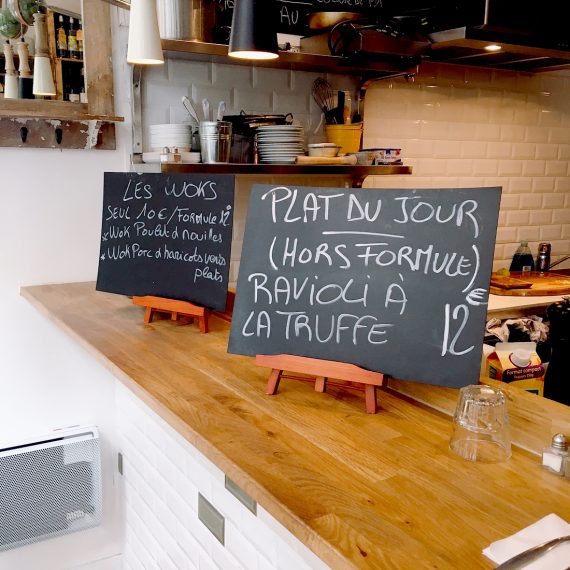 LES WOKS
SEUL 10€/FORMULE 12
*WOK Poulet d nouilles
*WOK PORC d haricots verts
plats
PLAT DU JOUR
(HORS FORMULE)
RAVIOLI À
LA TRUFFE 12€
AU
Format compact